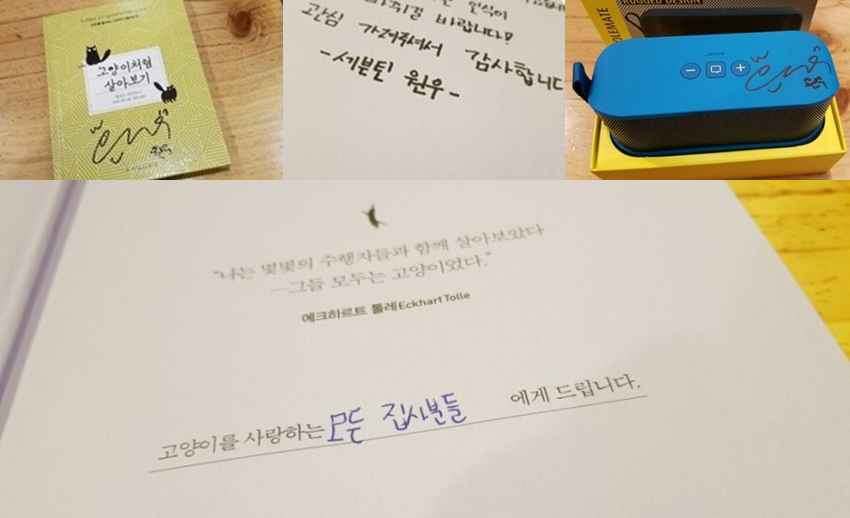 고양이처럼
살아보기
인식이
바뀌길 바랍니다!
관심 가져주셔서 감사합니다
-세븐틴 원우-
RUGGED DESIGN
OLEMATE
"나는 몇몇의 수행자들과 함께 살아보았다
—그들 모두는 고양이었다."
에크하르트 톨레 Eckhart Tolle
고양이를 사랑하는 모든 집사분들 에게 드립니다.